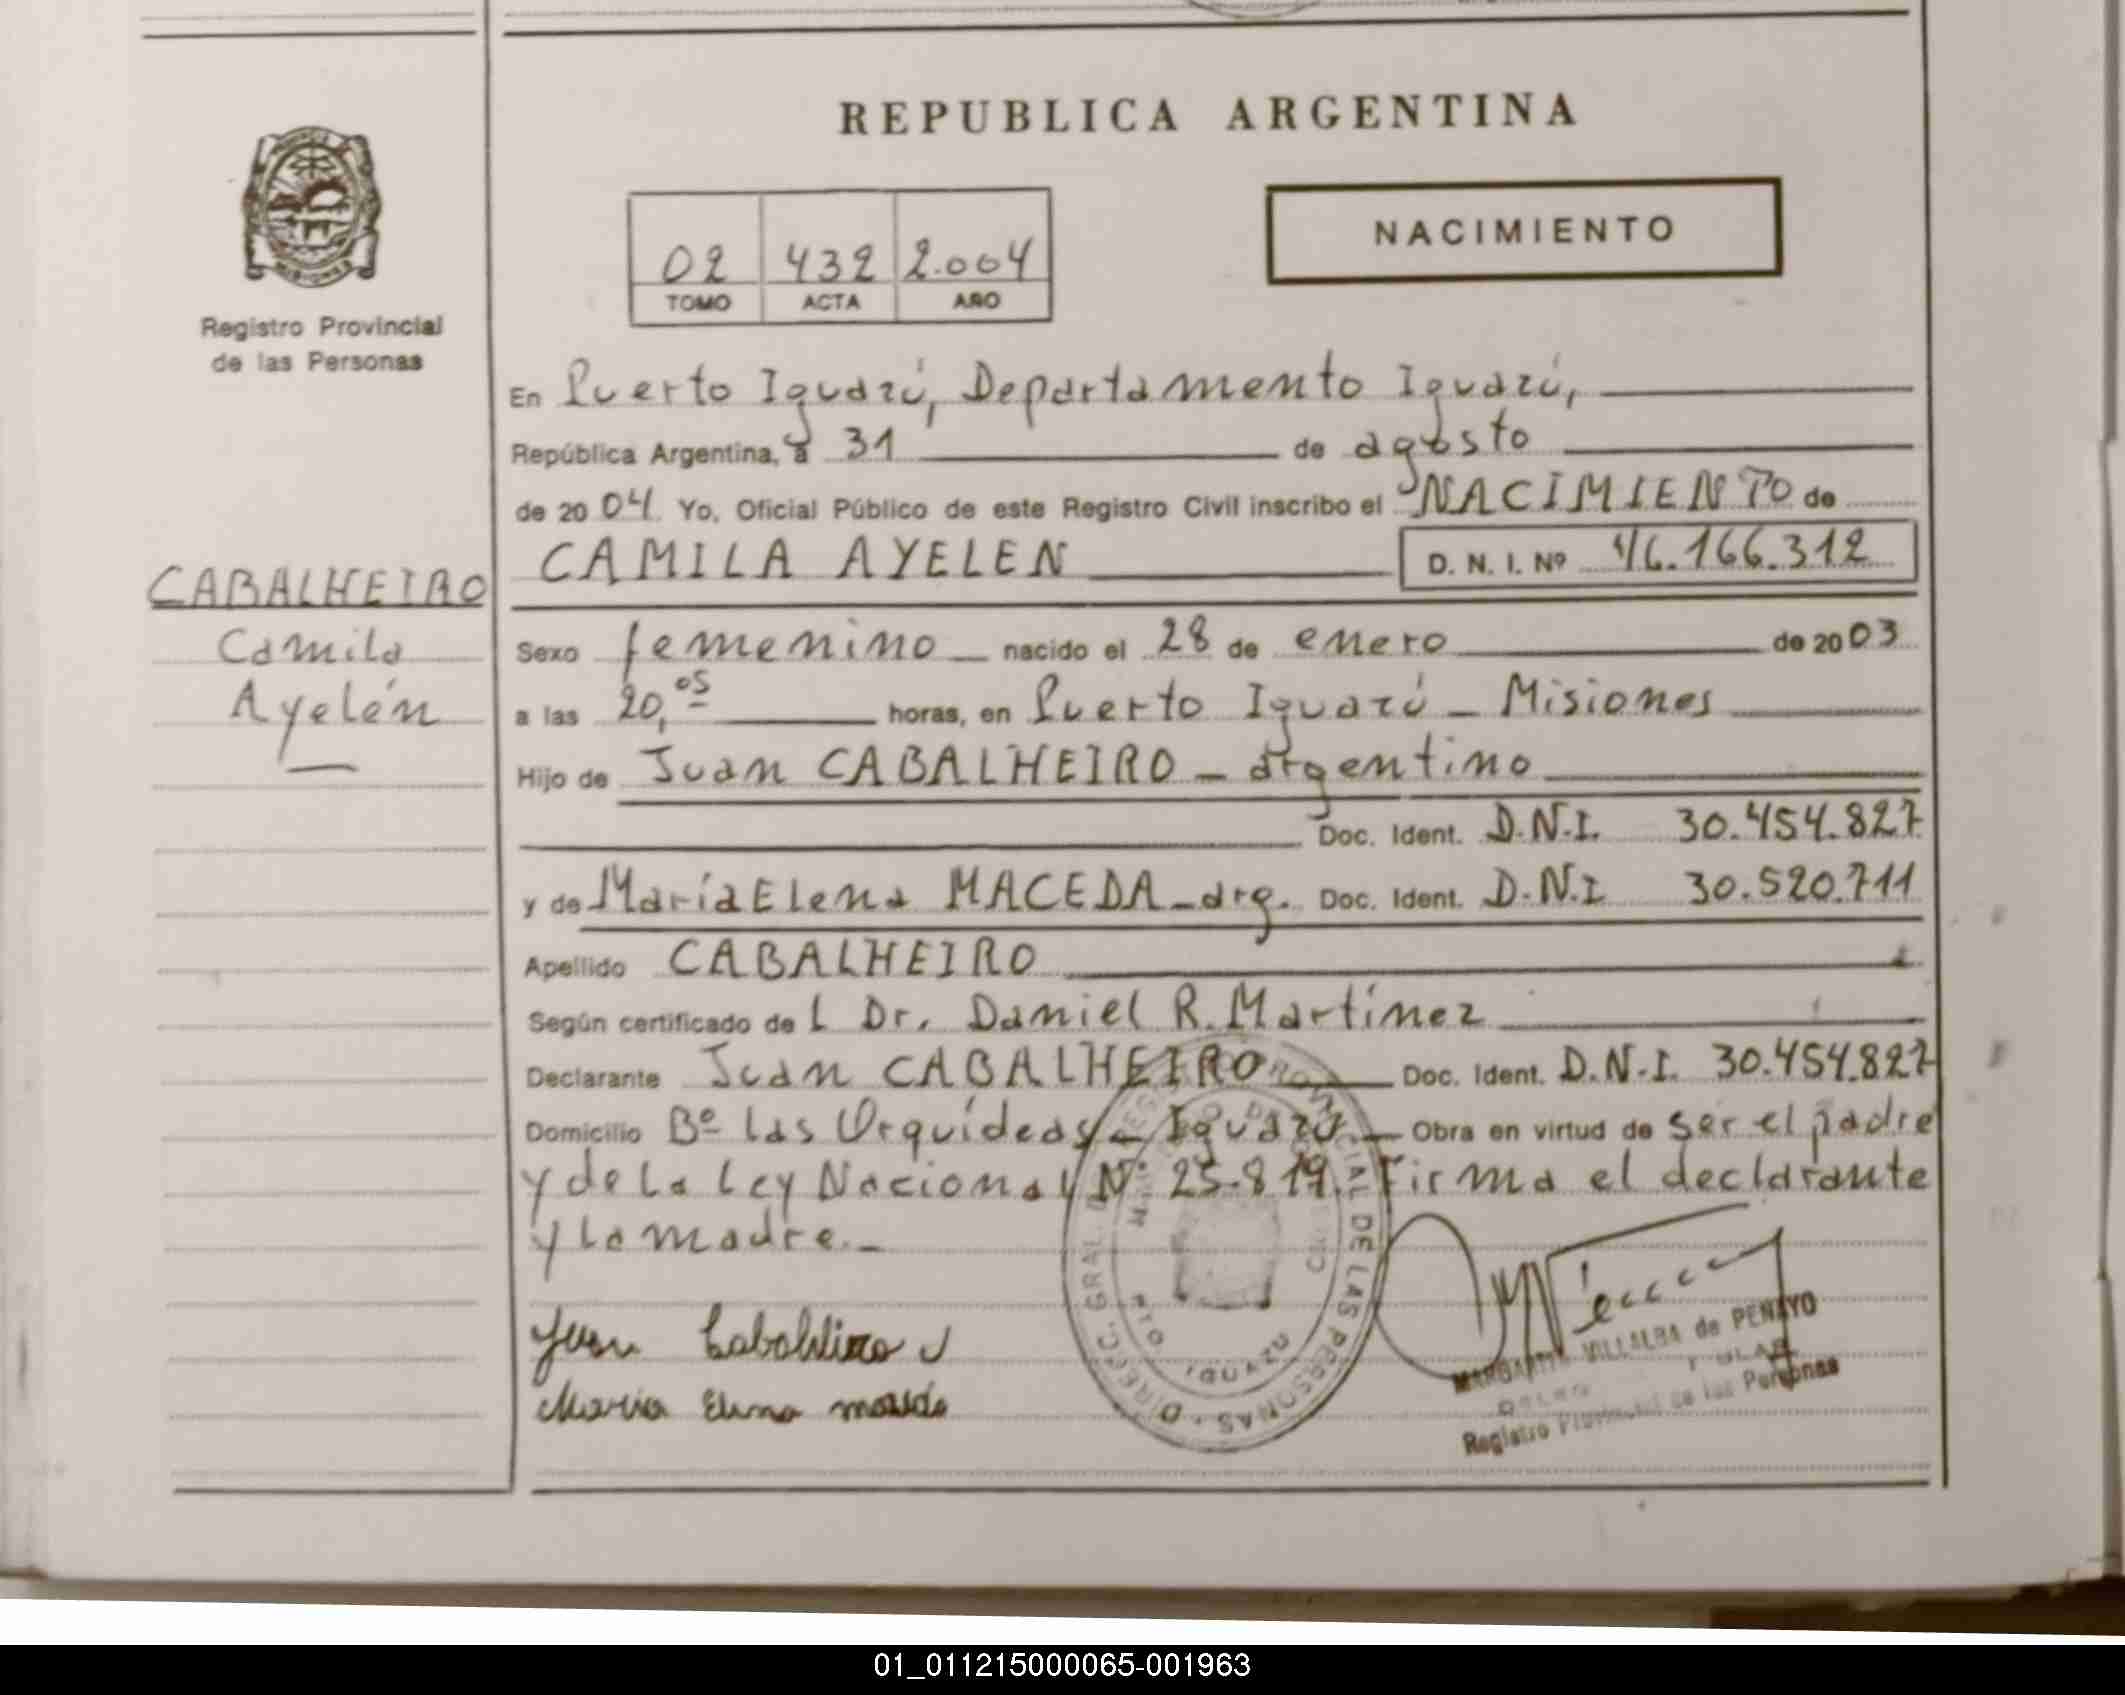 REPUBLICA ARGENTINA
NACIMIENTO
02 432 2.004
TOMO ACTA AÑO
Registro Provincial
de las Personas
CABALHEIRO
Camila
Ayelén
En Puerto Iguazú, Departamento Iguazú,
República Argentina, a 31 de agosto
de 2004 Yo, Oficial Público de este Registro Civil inscribo el NACIMIENTO de
CAMILA AYELEN D. N. I. Nº 46.166.312
Sexo femenino nacido el 28 de enero de 2003
a las 20,05 horas, en Puerto Iguazú - Misiones
Hijo de Juan CABALHEIRO - argentino
Doc. Ident. D.N.I. 30.454.827
y de María Elena MACEDA - arg. Doc. Ident. D.N.I 30.520.711
Apellido CABALHEIRO
Según certificado de l Dr. Daniel R. Martínez
Declarante Juan CABALHEIRO Doc. Ident. D.N.I. 30.454.827
Domicilio Bº Las Orquídeas - Iguazú - Obra en virtud de ser el padre
y de la Ley Nacional Nº 25.819. Firma el declarante
y la madre.-
Juan
Maria Elena
DIRECC. GRAL. DEL REGISTRO PROVINCIAL DE LAS PERSONAS
PTO IGUAZU
MARGARITA VILLALBA de PENAYO
Registro Provincial de las Personas
01_011215000065-001963